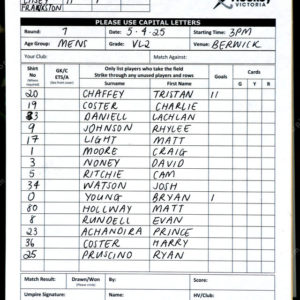 FRANKSTON
VICTORIA
PLEASE USE CAPITAL LETTERS
Round: 1 Date: 5.4.25 Starting Time: 3PM
Age Group: MENS Grade: VL2 Venue: BERWICK
Your Club: Match Against:
Shirt No GK/C ETS/A (See front cover) Only list players who take the field Strike through any unused players and rows Goals Cards
G Y R
20 CHAFFEY TRISTAN 11
19 COSTER CHARLIE
33 DANIELL LACHLAN
9 JOHNSON RHYLEE
17 LIGHT MATT
1 MOORE CRAIG
3 NONEY DAVID
5 RITCHIE CAM
34 WATSON JOSH
0 YOUNG BRYAN 1
80 HOLLWAY MATT
8 RUNDELL EVAN
23 ACHANDIRA PRINCE
36 COSTER HARRY
25 PRUSCINO RYAN
Match Result: Drawn/Won By: Score:
Umpire Signature: Name: HV/Club: